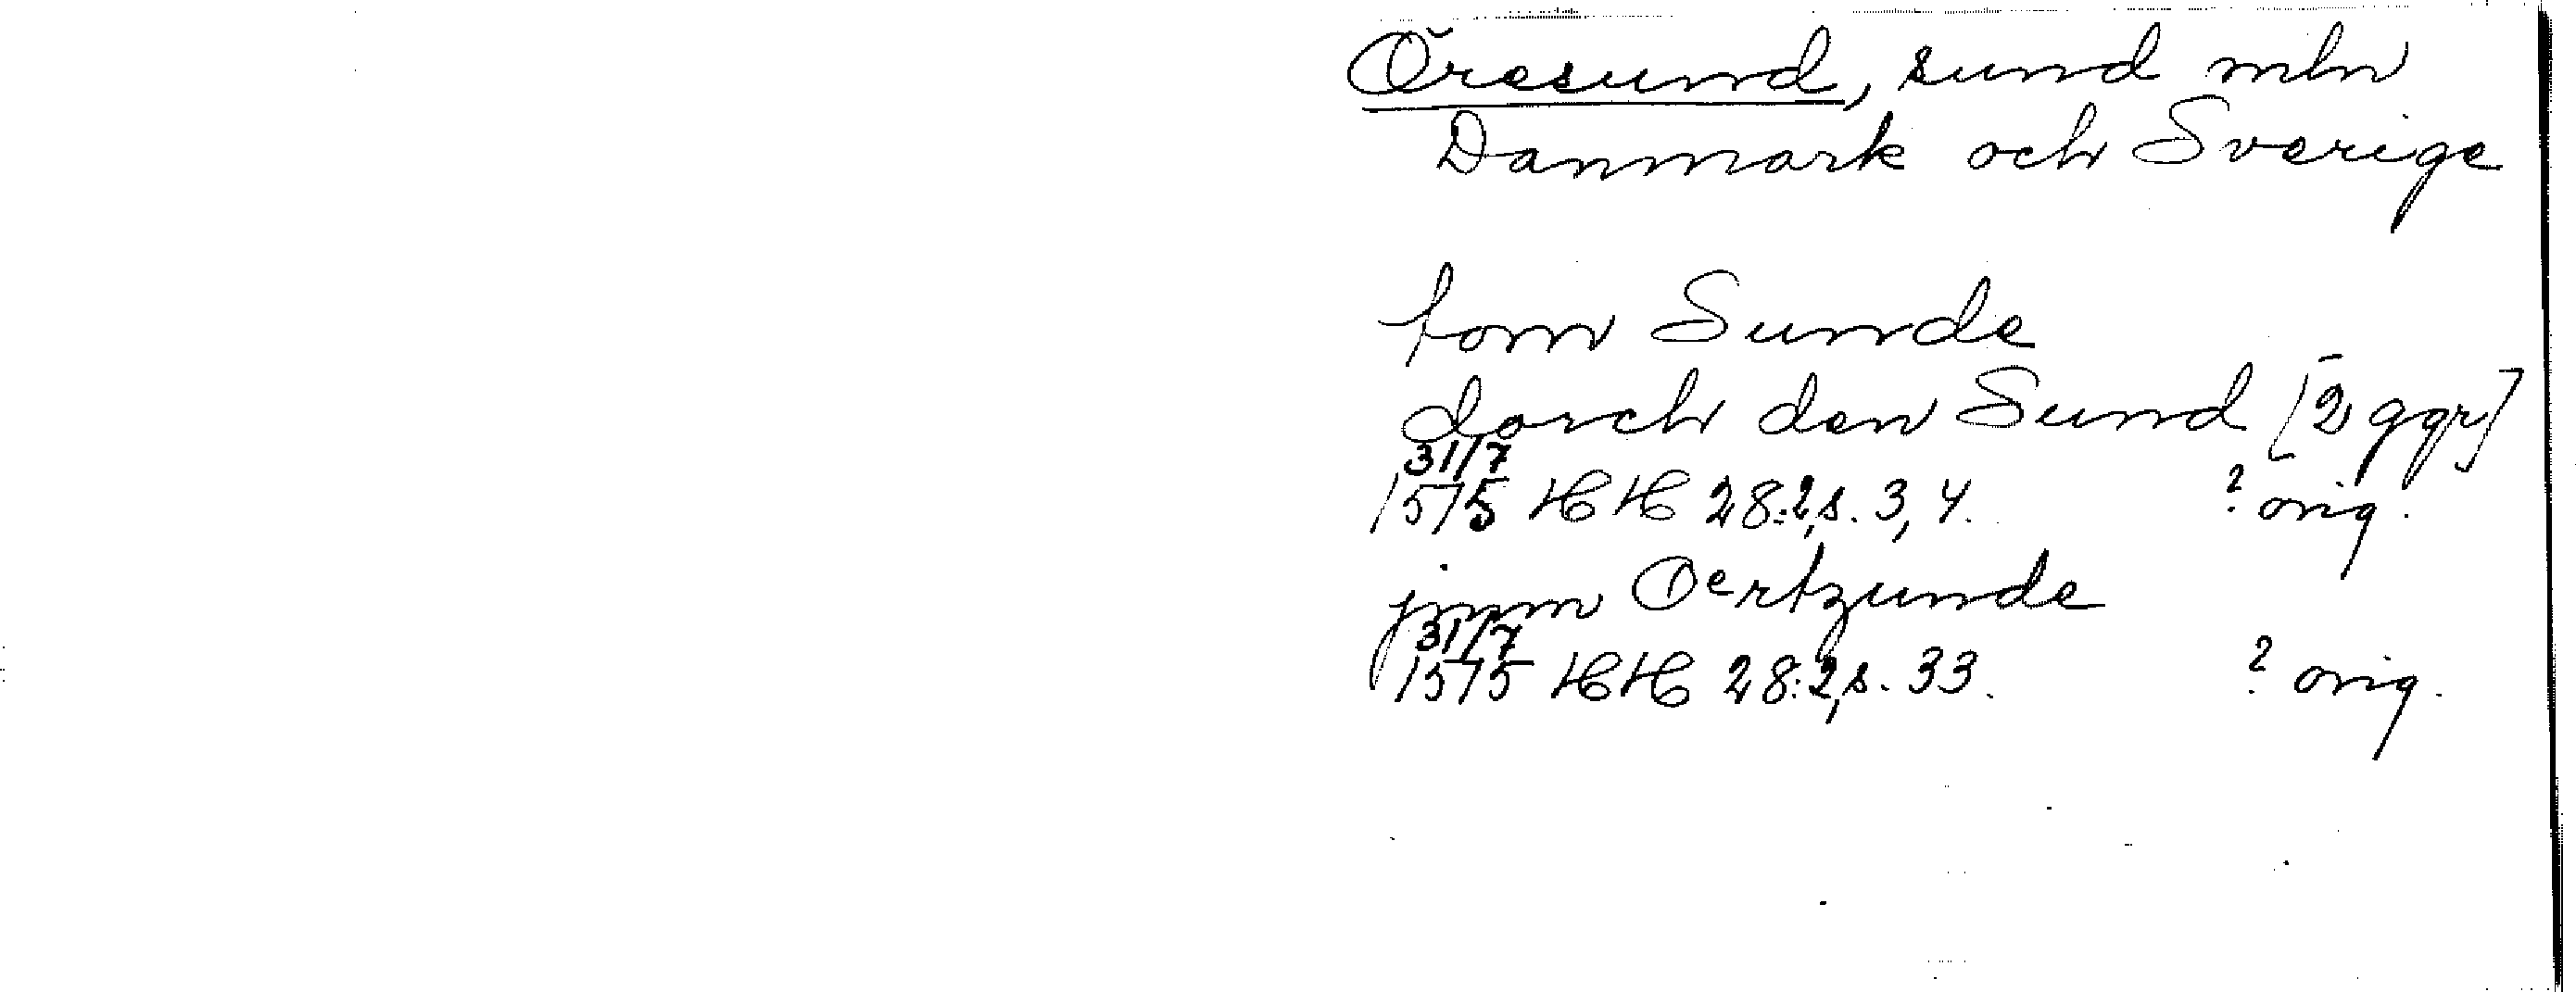 Öresund, sund mln
Danmark och Sverige
fom Sunde
dorch den Sund [2 ggr]
31/7
1575 HH 28:2, s. 3, 4. ? orig.
jmm Oertzunde
31/7
1575 HH 28:2, s. 33. ? orig.